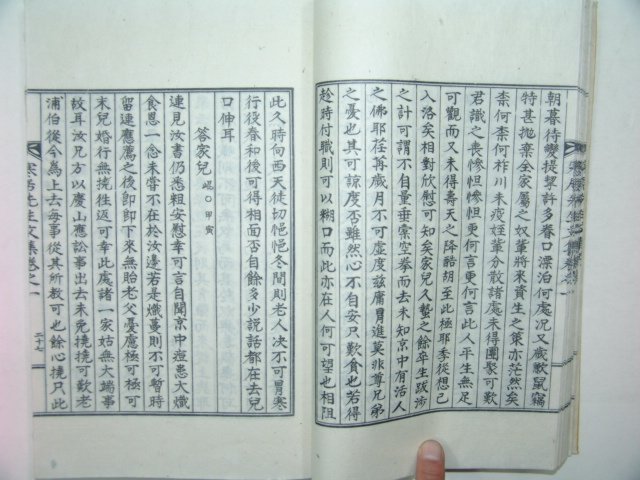 朝暮待變提挈許多眷口漂泊何處况又歲歉鼠竊
特甚抛棄全家屬之奴輩將來資生之策亦茫然矣
柰何柰何祚川未疫姪輩分散諸處未得團聚可歎
君識之喪慘怛慘怛更何言更何言此人平生無足
可觀而又未得壽天之降酷胡至此極耶季從想已
入洛矣相對欣慰可知矣家兒入蟄之餘卒生跋涉
之計可謂不自量垂橐空拳而去未知京中有活人
之佛耶在再歲月不可虛度玆庸冒進莫非尊兄弟
之憂也其可諒度否雖然心不自安只歎食也若得
趁時付職則可以糊口而此亦在人何可望也相阻
此久時向西天徒切悒悒冬間則老人决不可冒寒
行役春和後可得相面否自餘多少說話都在去兒
口伸耳
答家兒 岷○甲寅
連見汝書仍悉粗安慰幸可言自聞京中痘患大熾
食息一念未嘗不在於汝邊若是熾蔓則不可暫時
留連應薦之後卽卽下來無貽老父憂慮極可極可
末兒婚行無撓往返可幸此處諸一家姑無大端事
故耳汝兄方以慶山應訟事出去未免撓撓可歎老
浦伯從今爲上去每事從其所敎可也餘心撓只此
宋

先生文集卷之一
二十七